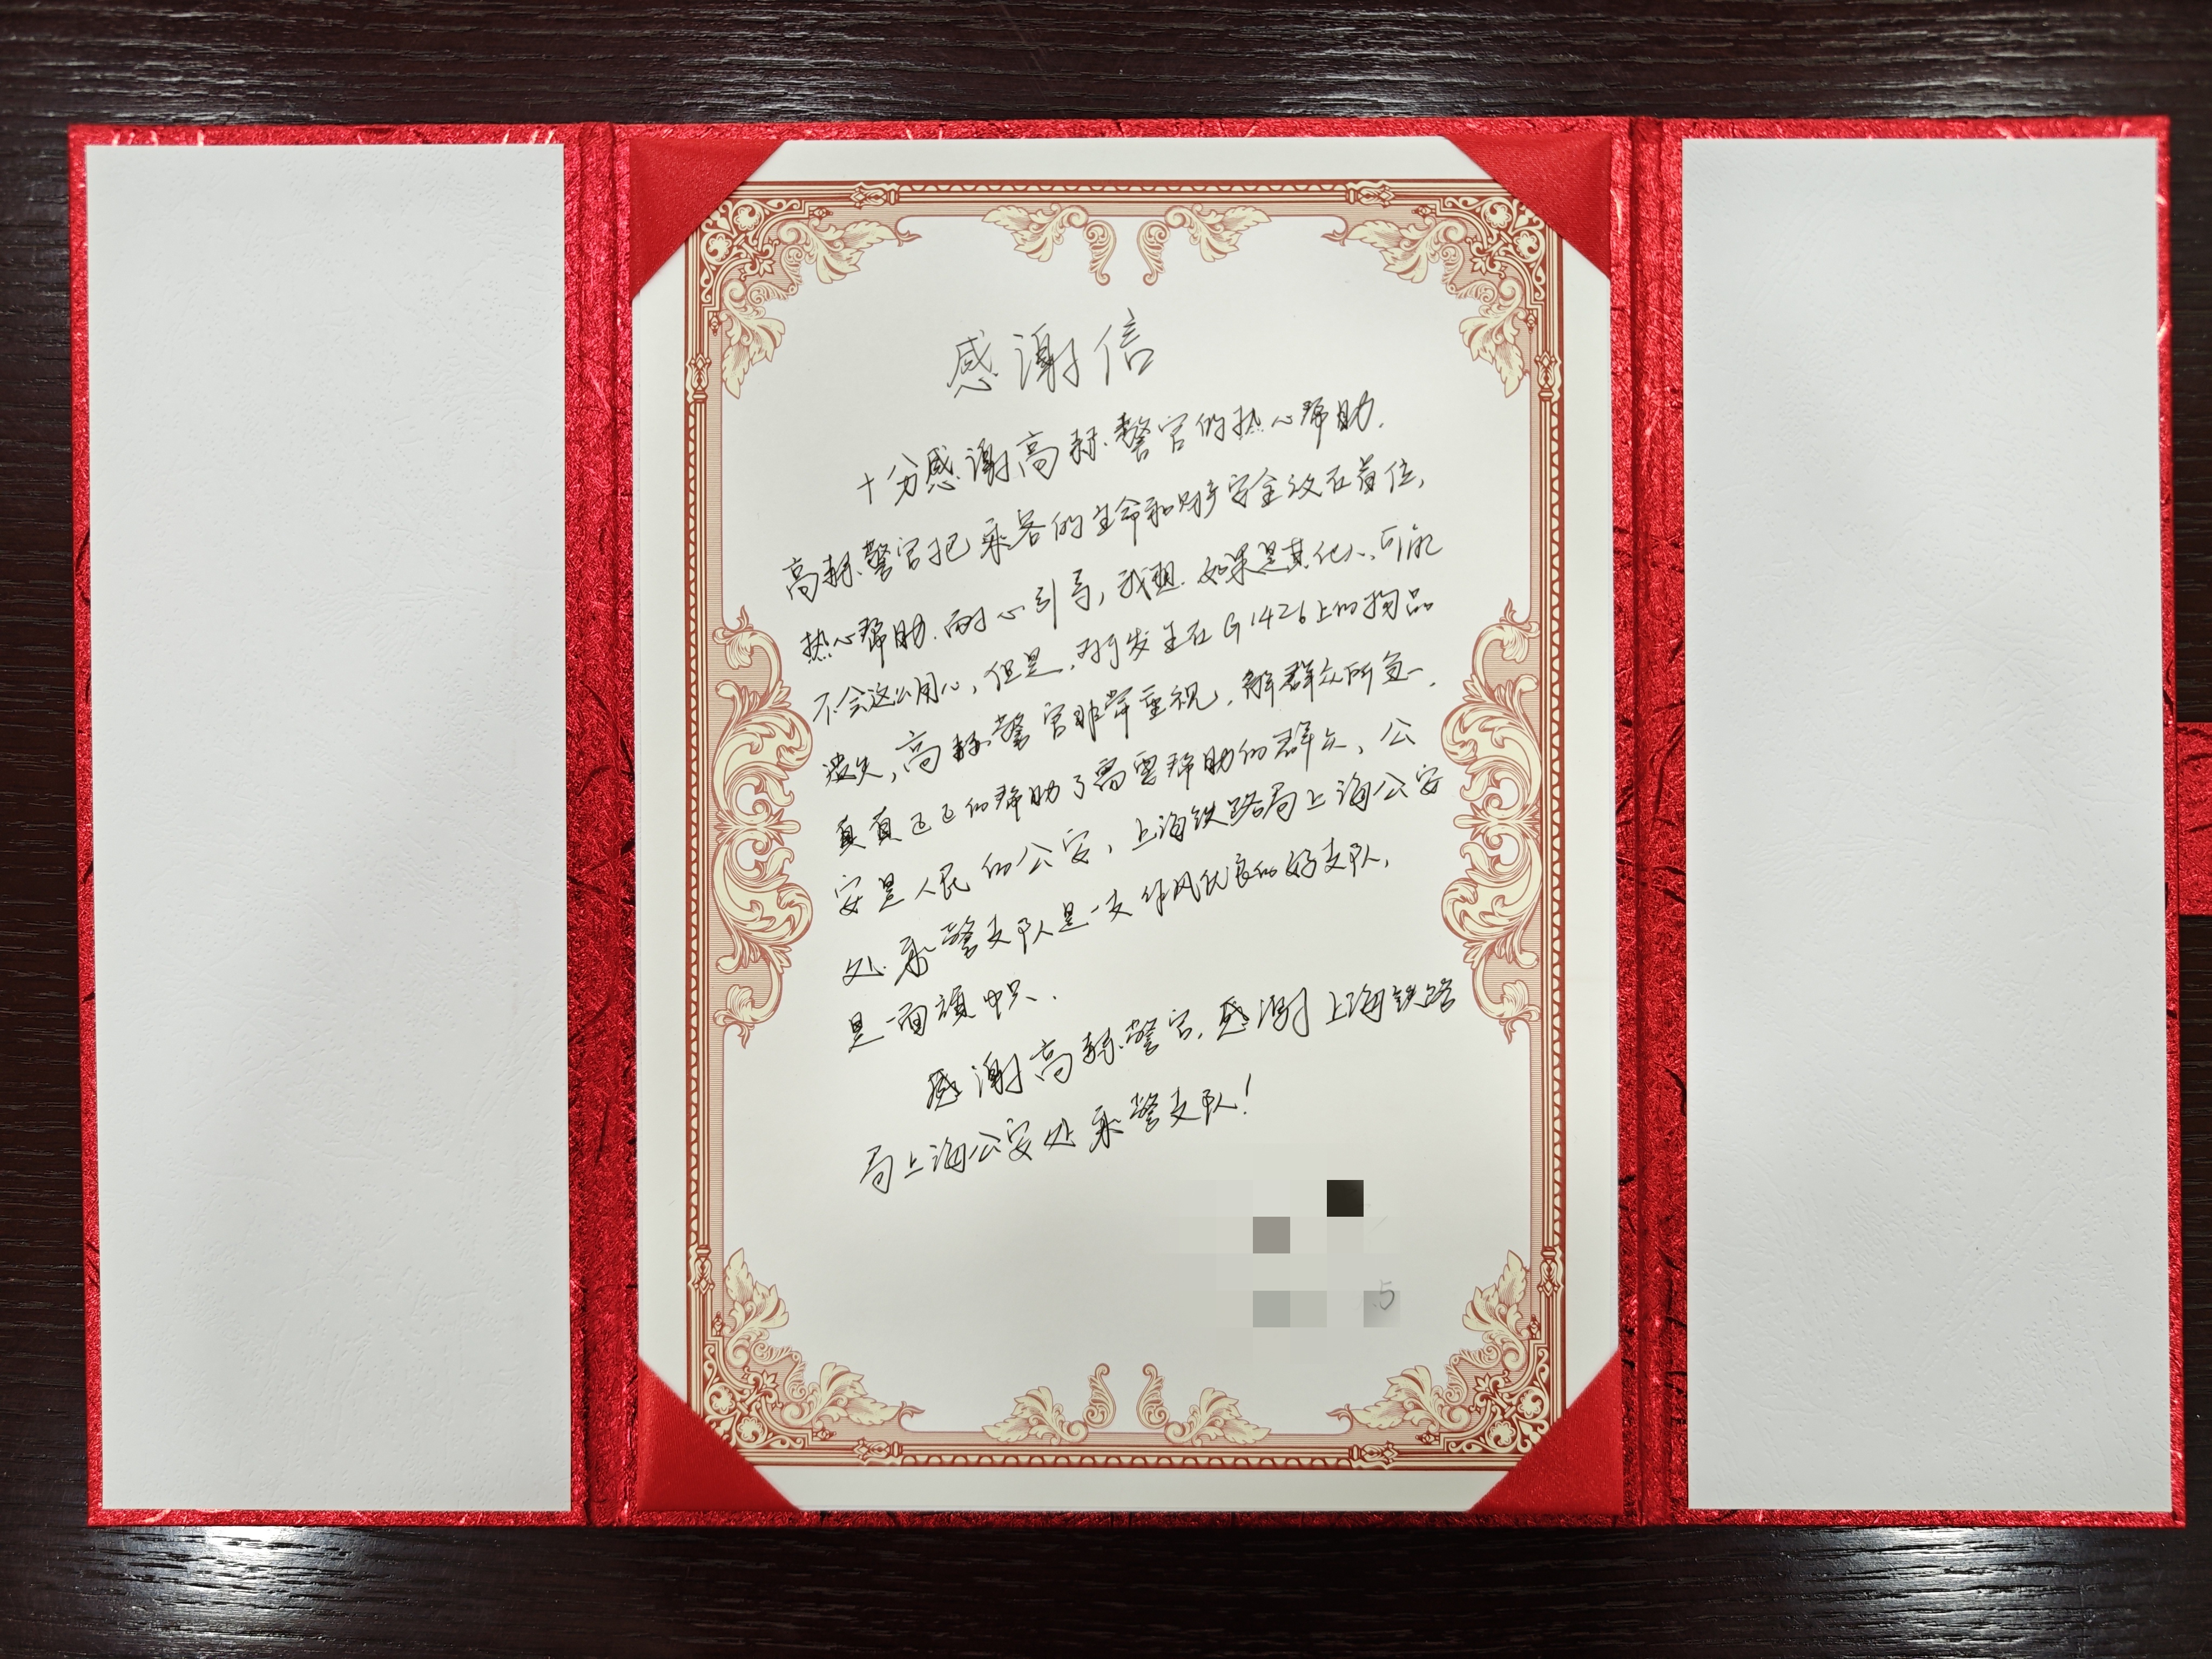 感谢信
十分感谢高赫警官的热心帮助.
高赫警官把乘客的生命和财产安全放在首位,
热心帮助.耐心引导,我想.如果是其他人,可能
不会这么用心,但是,对于发生在G1426上的物品
遗失,高赫警官非常重视,解群众所急.
真真正正的帮助了需要帮助的群众,公
安是人民的公安,上海铁路局上海公安
处乘警支队是一支作风优良的好支队,
是一面旗帜.
感谢高赫警官,感谢上海铁路
局上海公安处乘警支队!
5